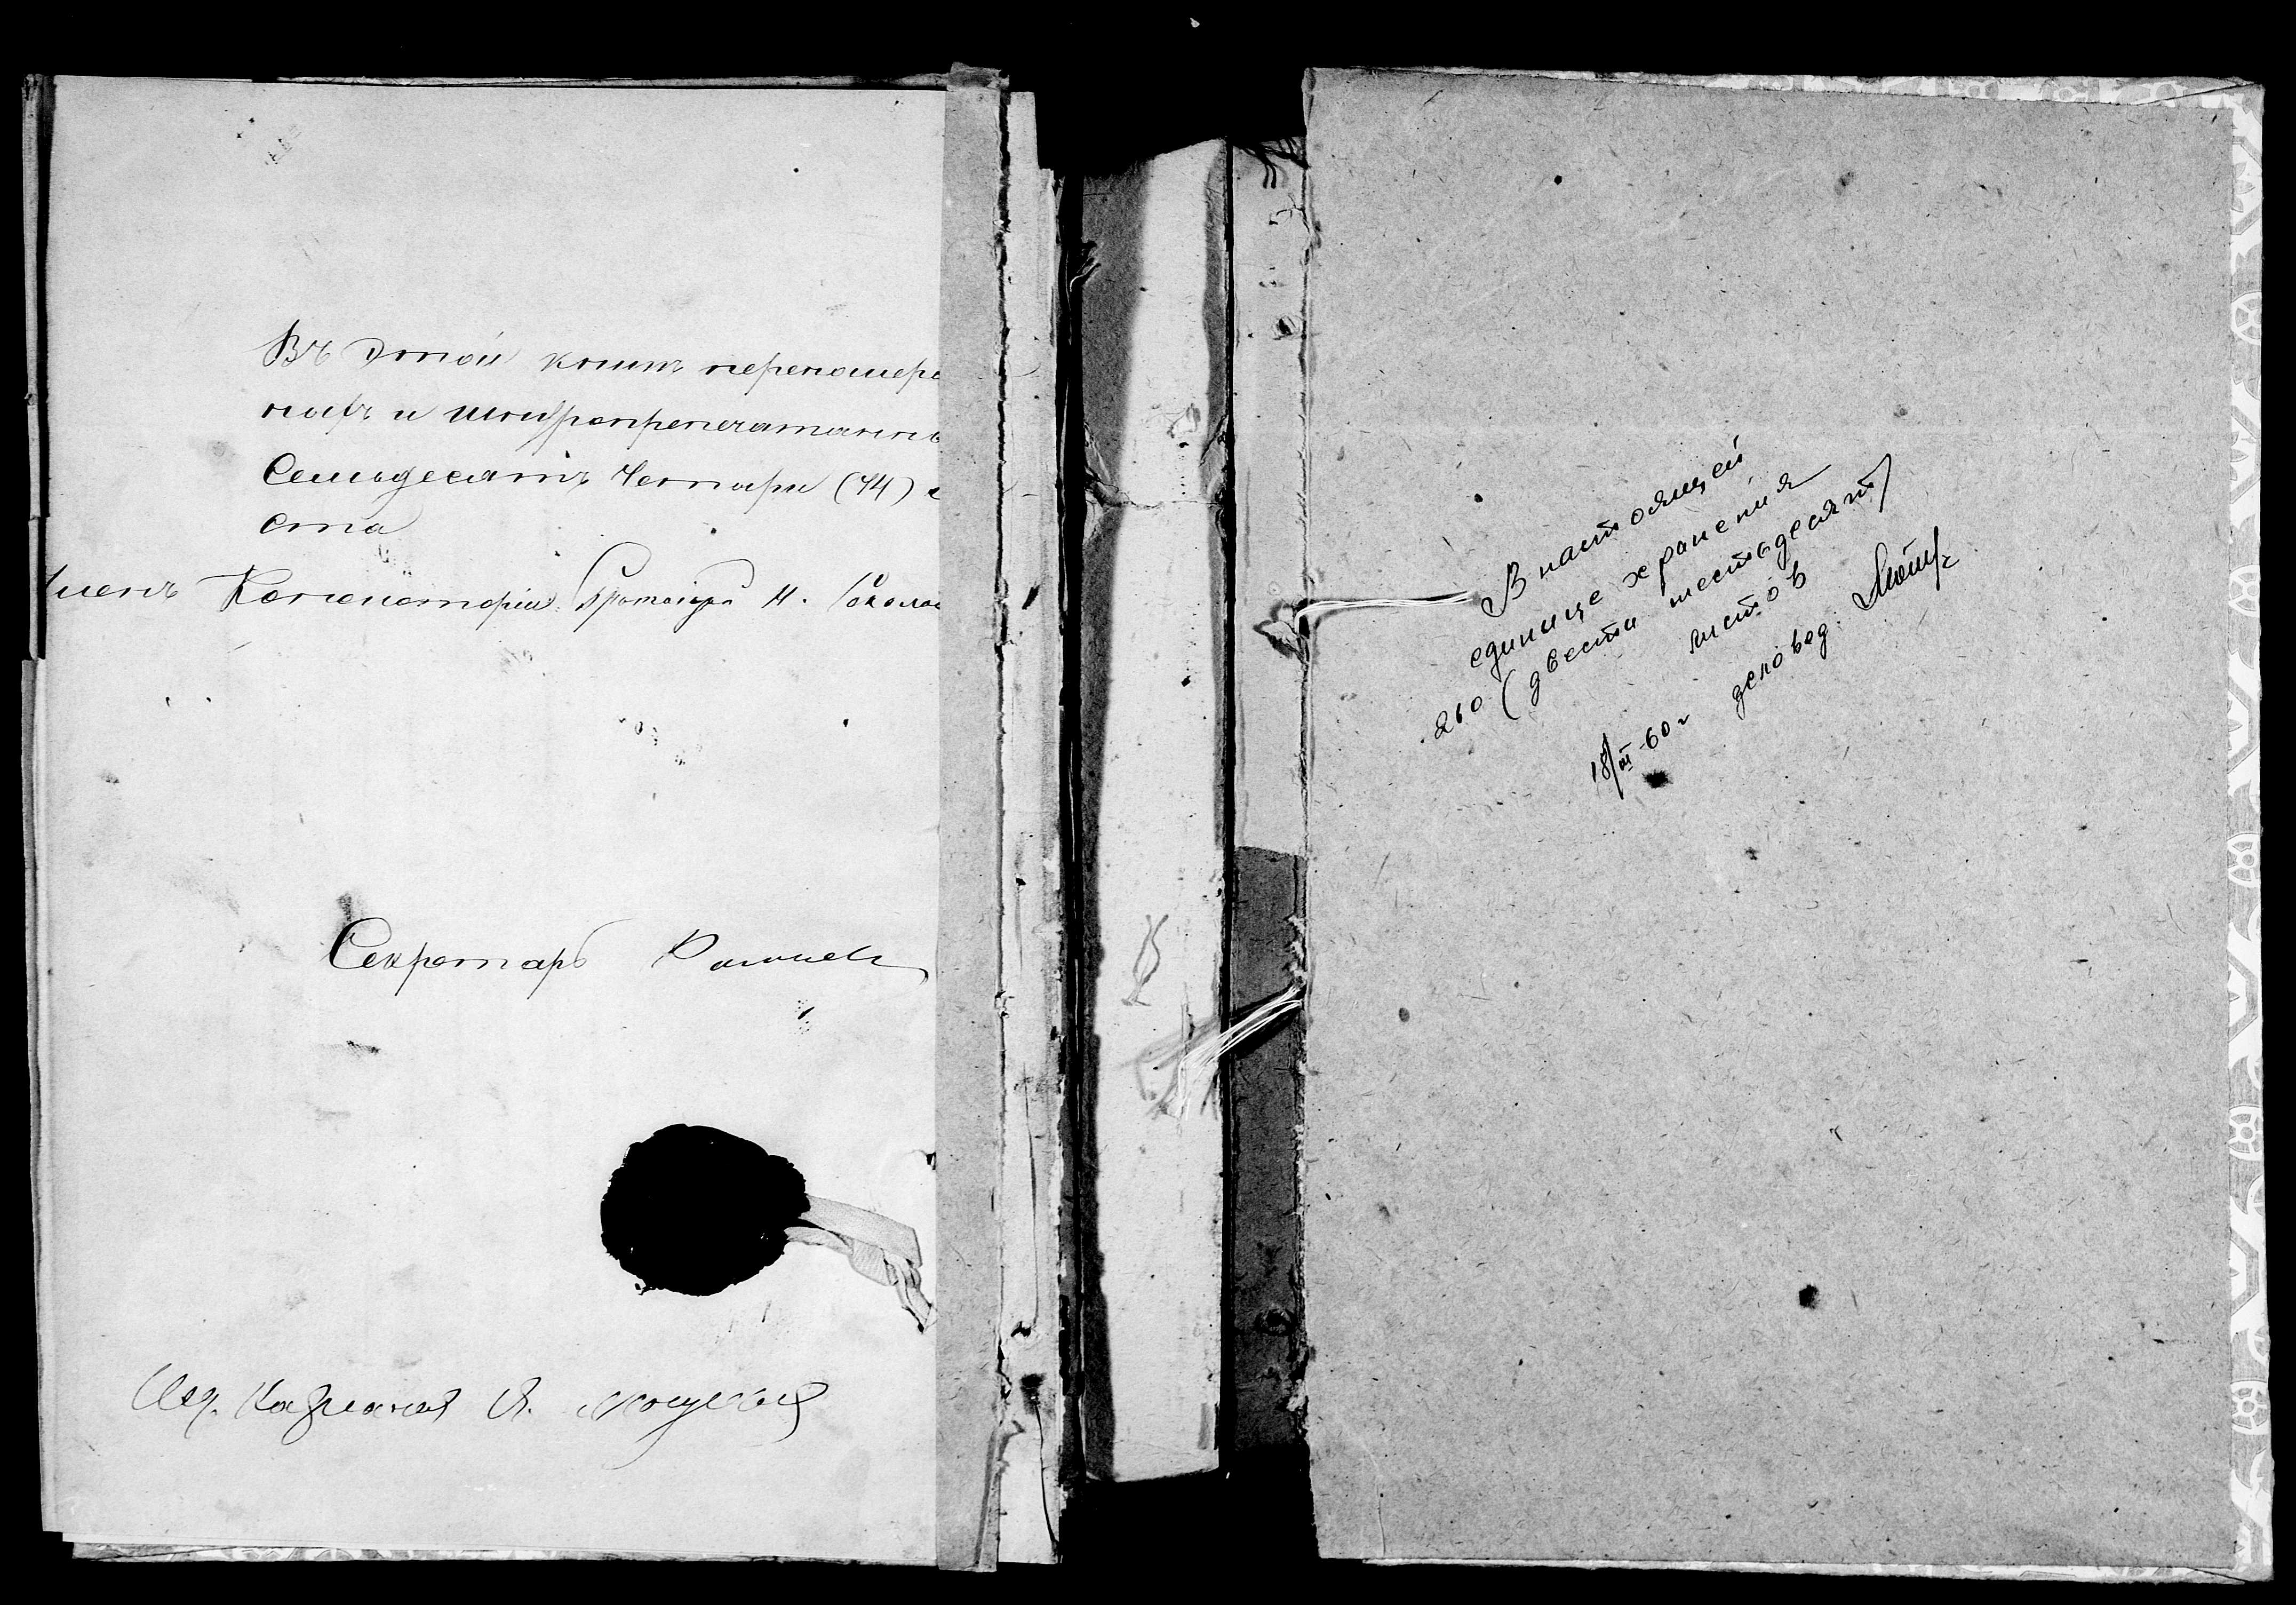 Въ этой книгѣ перенумеро
ныхъ и шнуропрепечатанны
Семьдесятъ Четыри (74) л
ста
Членъ Консисторіи Протоіерей Н. Соколов
Секретарь
Исд. Казначея А.
В настоящей
единице хранения
260 (двести шестьдесят)
листов
18/III-60 г деловед.